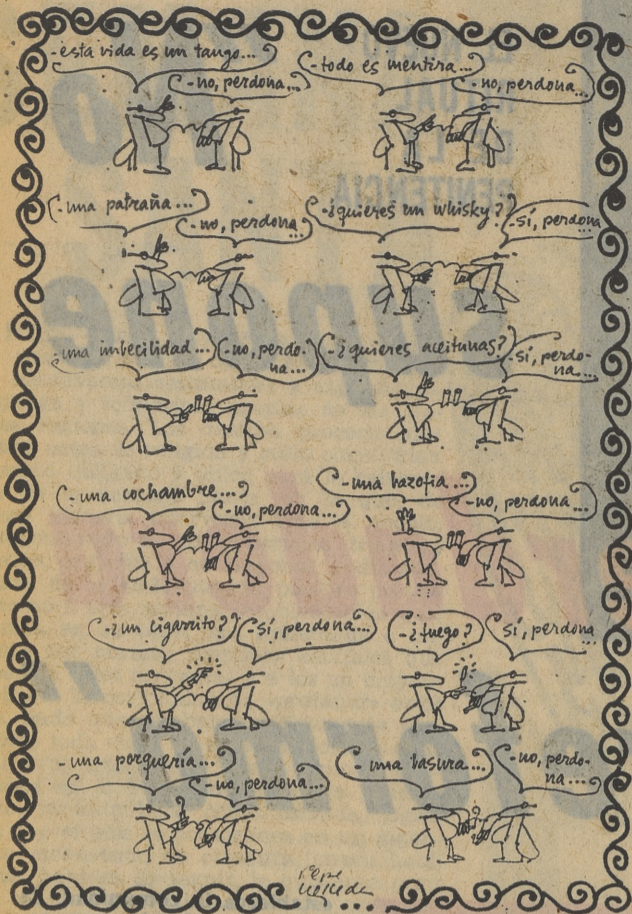 -esta vida es un tango...
-no, perdona...
-todo es mentira...
-no, perdona...
-una patraña...
-no, perdona...
-¿quieres un whisky?
-sí, perdona...
-una imbecilidad...
-no, perdo-
na...
-¿quieres aceitunas?
-sí, perdo-
na...
-una cochambre...
-no, perdona...
-una bazofia...
-no, perdona...
-¿un cigarrito?
-sí, perdona...
-¿fuego?
sí, perdona
-una porquería...
-no, perdona...
-una basura...
-no, perdo-
na...